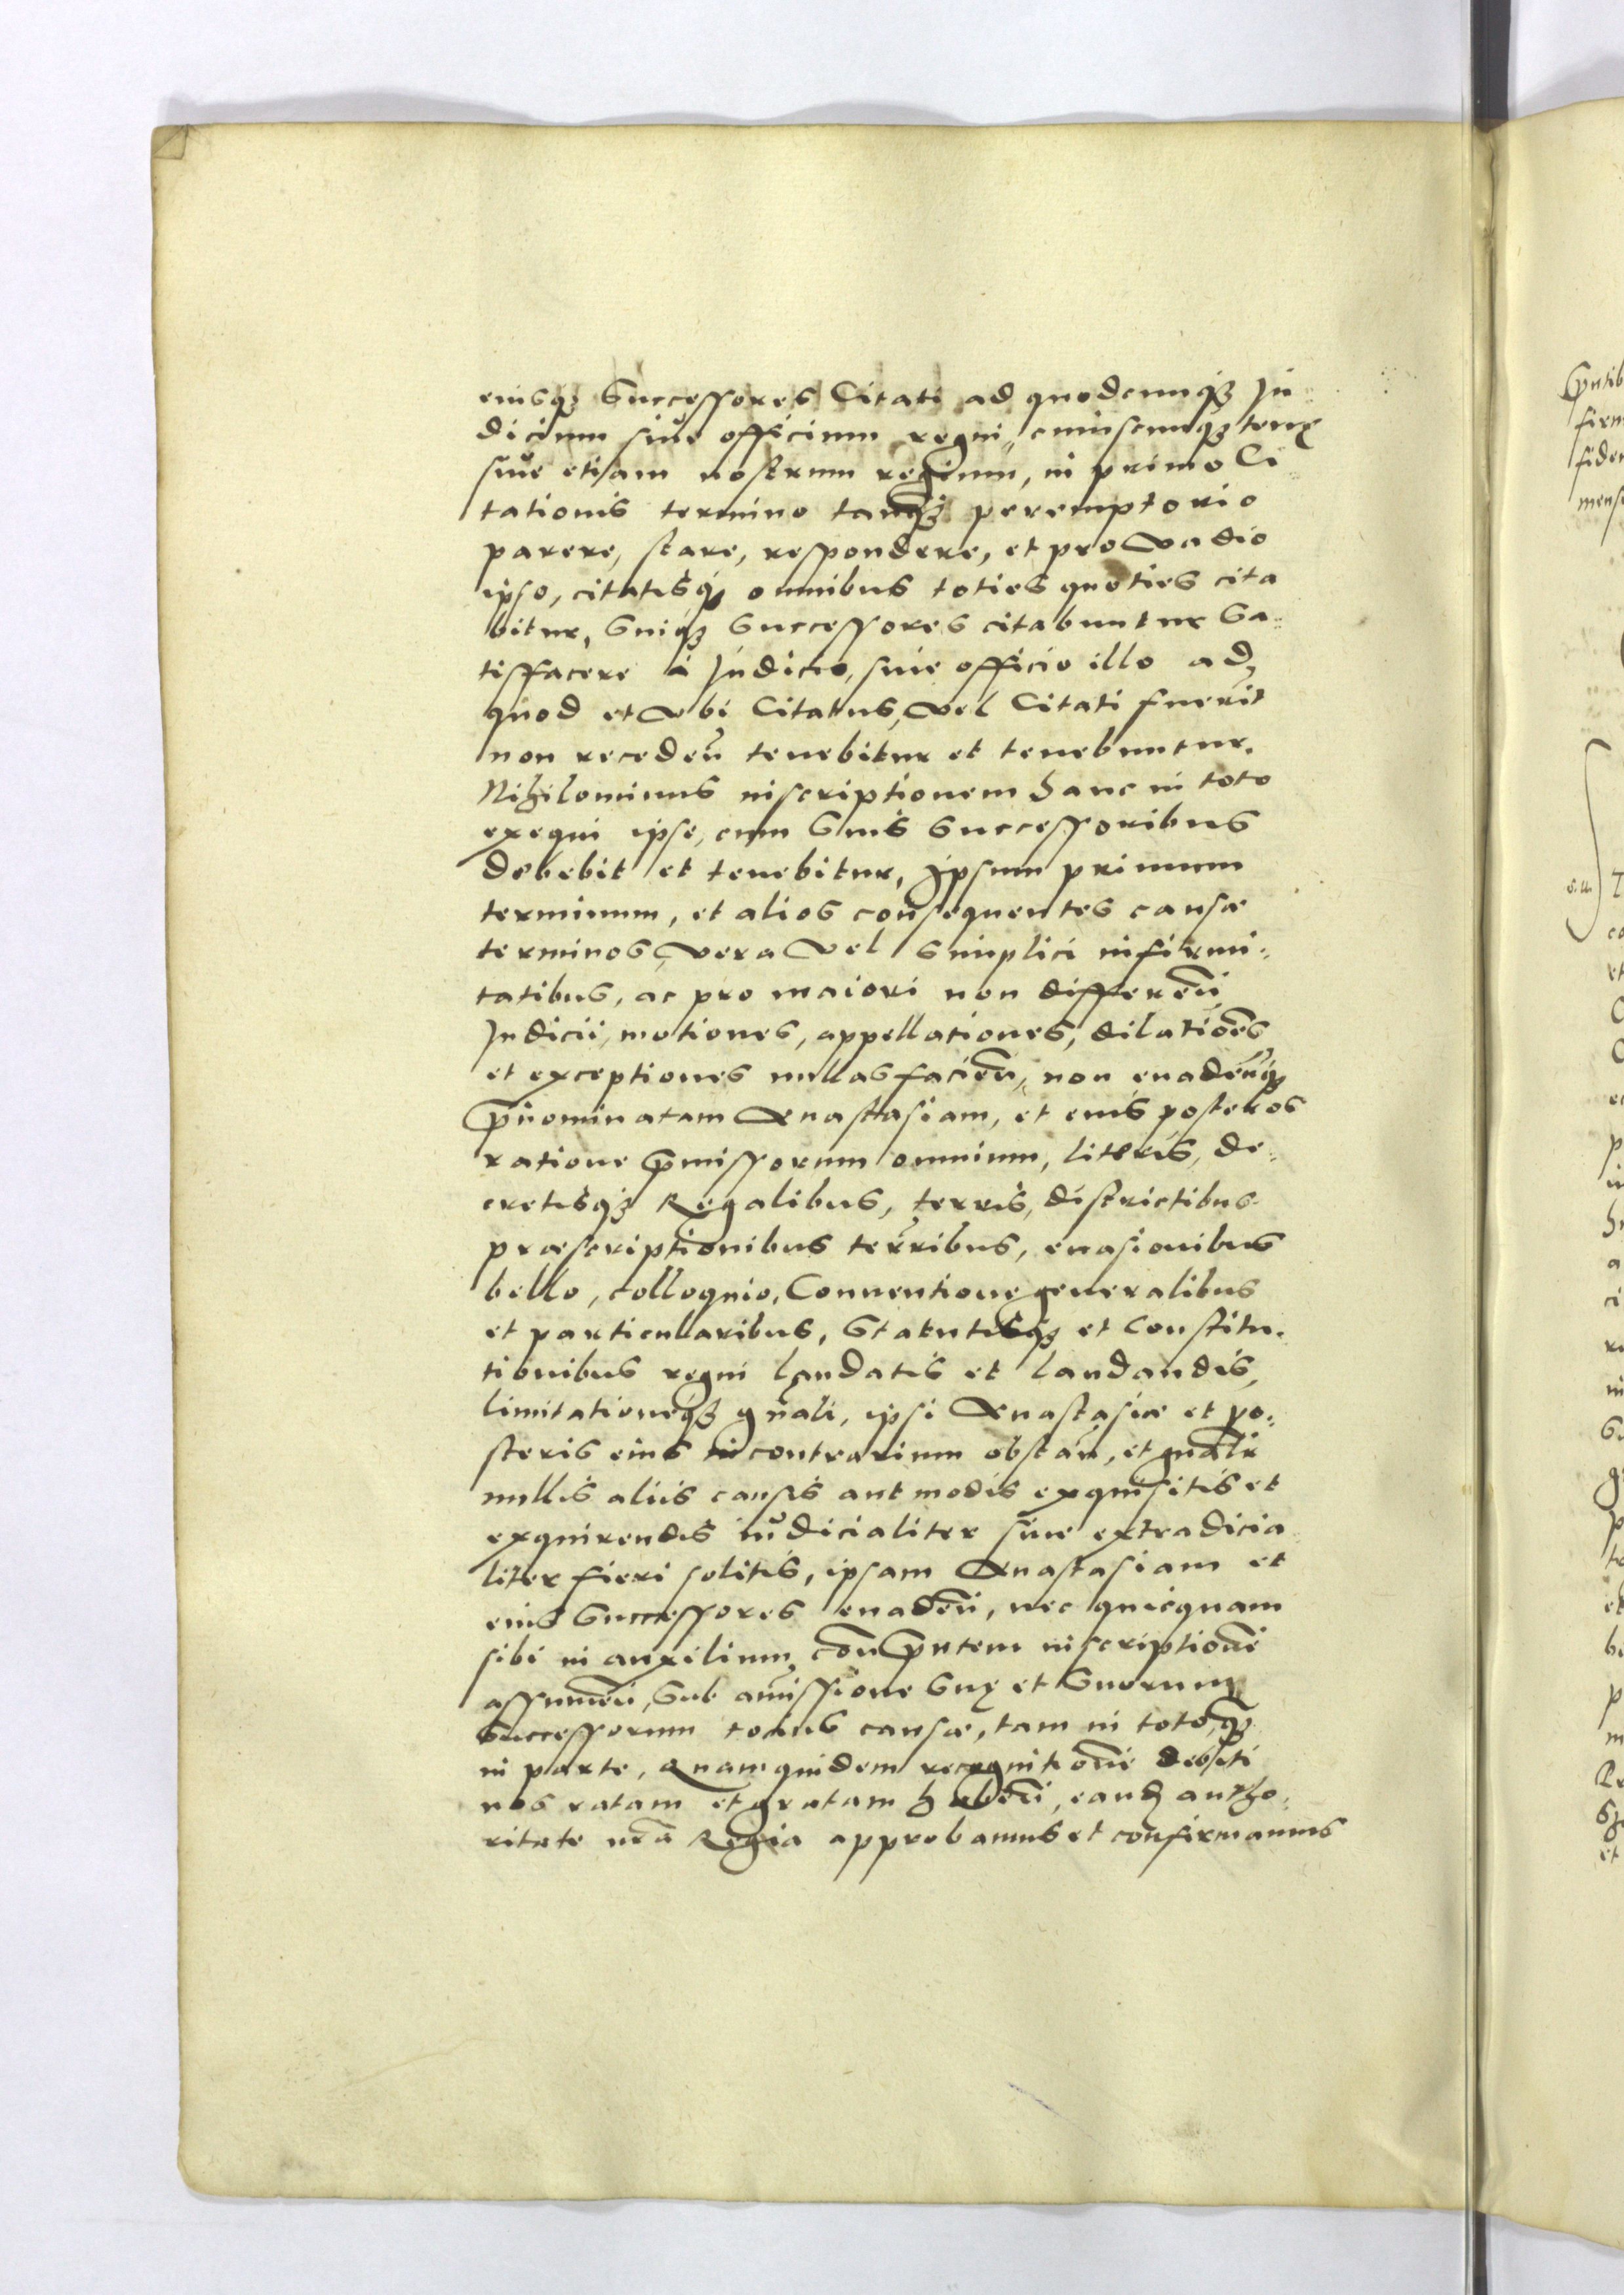 eiusq₃ Successores Citati ad quodcunq₃ Ju-
dicium siue officium regni, cuiuscunq₃ terrę
siue etiam nostrum regium, in primo Ci
tationis termino tanq̃₃ peremptorio
parere, stare, respondere, et pro vadio
ipso, citatisq₃ omnibus toties quoties cita
bitur, Suiq₃ Successores citabuntur Sa-
tisfacere à Judicio, siue officio illo ad
quod et vbi Citatus, vel Citati fuerit
non recedeñ tenebitur et tenebuntur.
Nihilominus inscriptionem hanc in toto
exequi ipse, cum Suis Successoribus
debebit et tenebitur, Ipsum primum
terminum, et alios consequentes causæ
terminos, vera vel Simplici infirmi-
tatibus, ac pro maiori non differeñ
Judicii, motiones, appellationes, dilatiões
et exceptiones nullas facieñ, non euadeñq₃
p̃nominatam Anastasiam, et eius posteros
ratione p̃missorum omnium, literis, de-
cretisq₃ Regalibus, terris, districtibus
præscriptionibus terr̃ribus, euasionibus
bello, colloquio, Conuentione generalibus
et particularibus, Statutisq₃ et Constitu-
tionibus regni laudatis et laudandis,
limitationeq₃ gñali, ipsi Anastasiæ et po-
steris eius in contrarium obstañ, et gñalr̃
nullis aliis causis aut modis exquisitis et
exquirendis iudicialiter siue extradicia
liter fieri solitis, ipsam Anastasiam et
eius Successores euadeñ, nec quicquam
sibi in auxilium, con̄ p̃ntem inscriptionẽ
assumeñ, Sub amissione Suę et Suorum
Successorum totius causæ, tam in toto, q̃₃
in parte, Quamquidem recognitionẽ debiti
nos ratam et gratam habeñ, eand₃ autho-
ritate nr̃a Regia approbamus et confirmamus